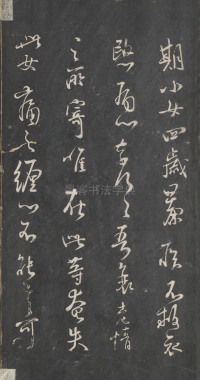 期小女四歲暴疾不救哀
愍痛心奈何吾衰老情
之所寄唯在此等奄失
此女痛之纏心不能